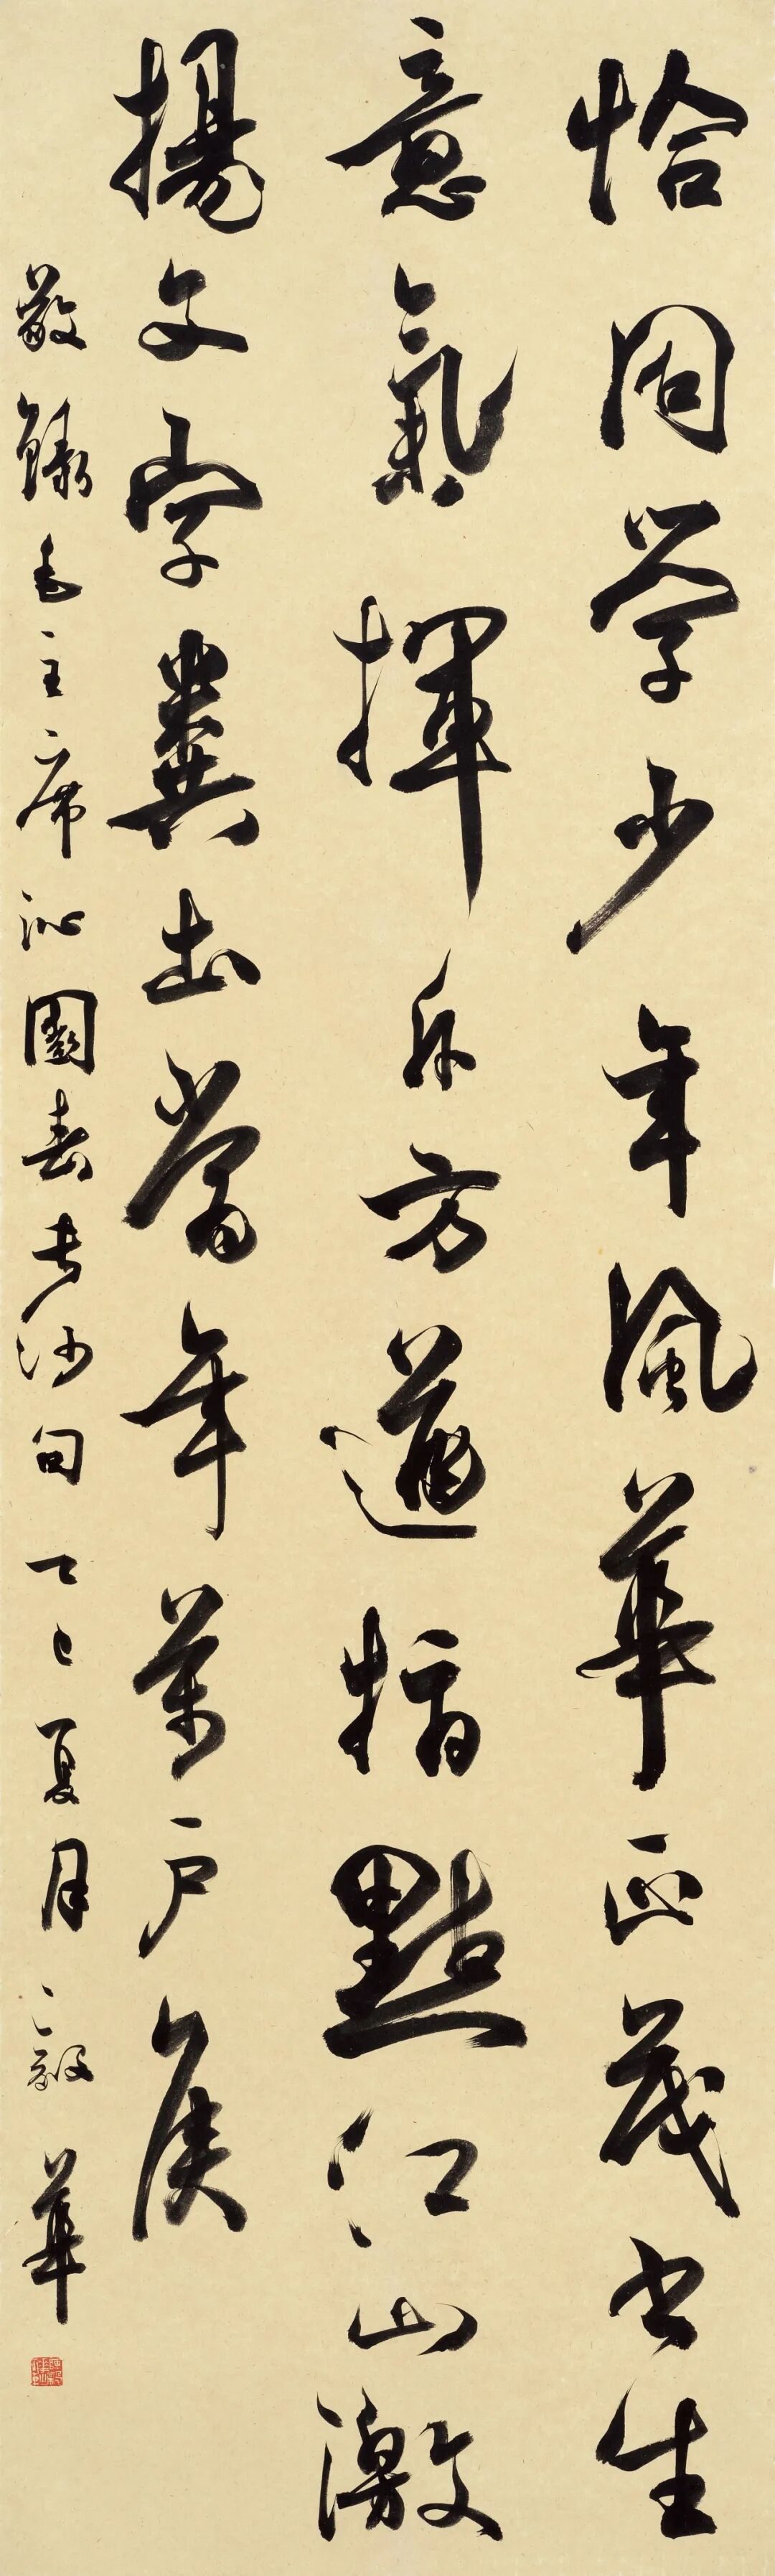 恰同學少年風華正茂书生
意氣揮斥方遒指點江山激
揚文字糞土當年萬户侯
敬錄毛主席沁園春長沙句 丁巳夏月 毅華